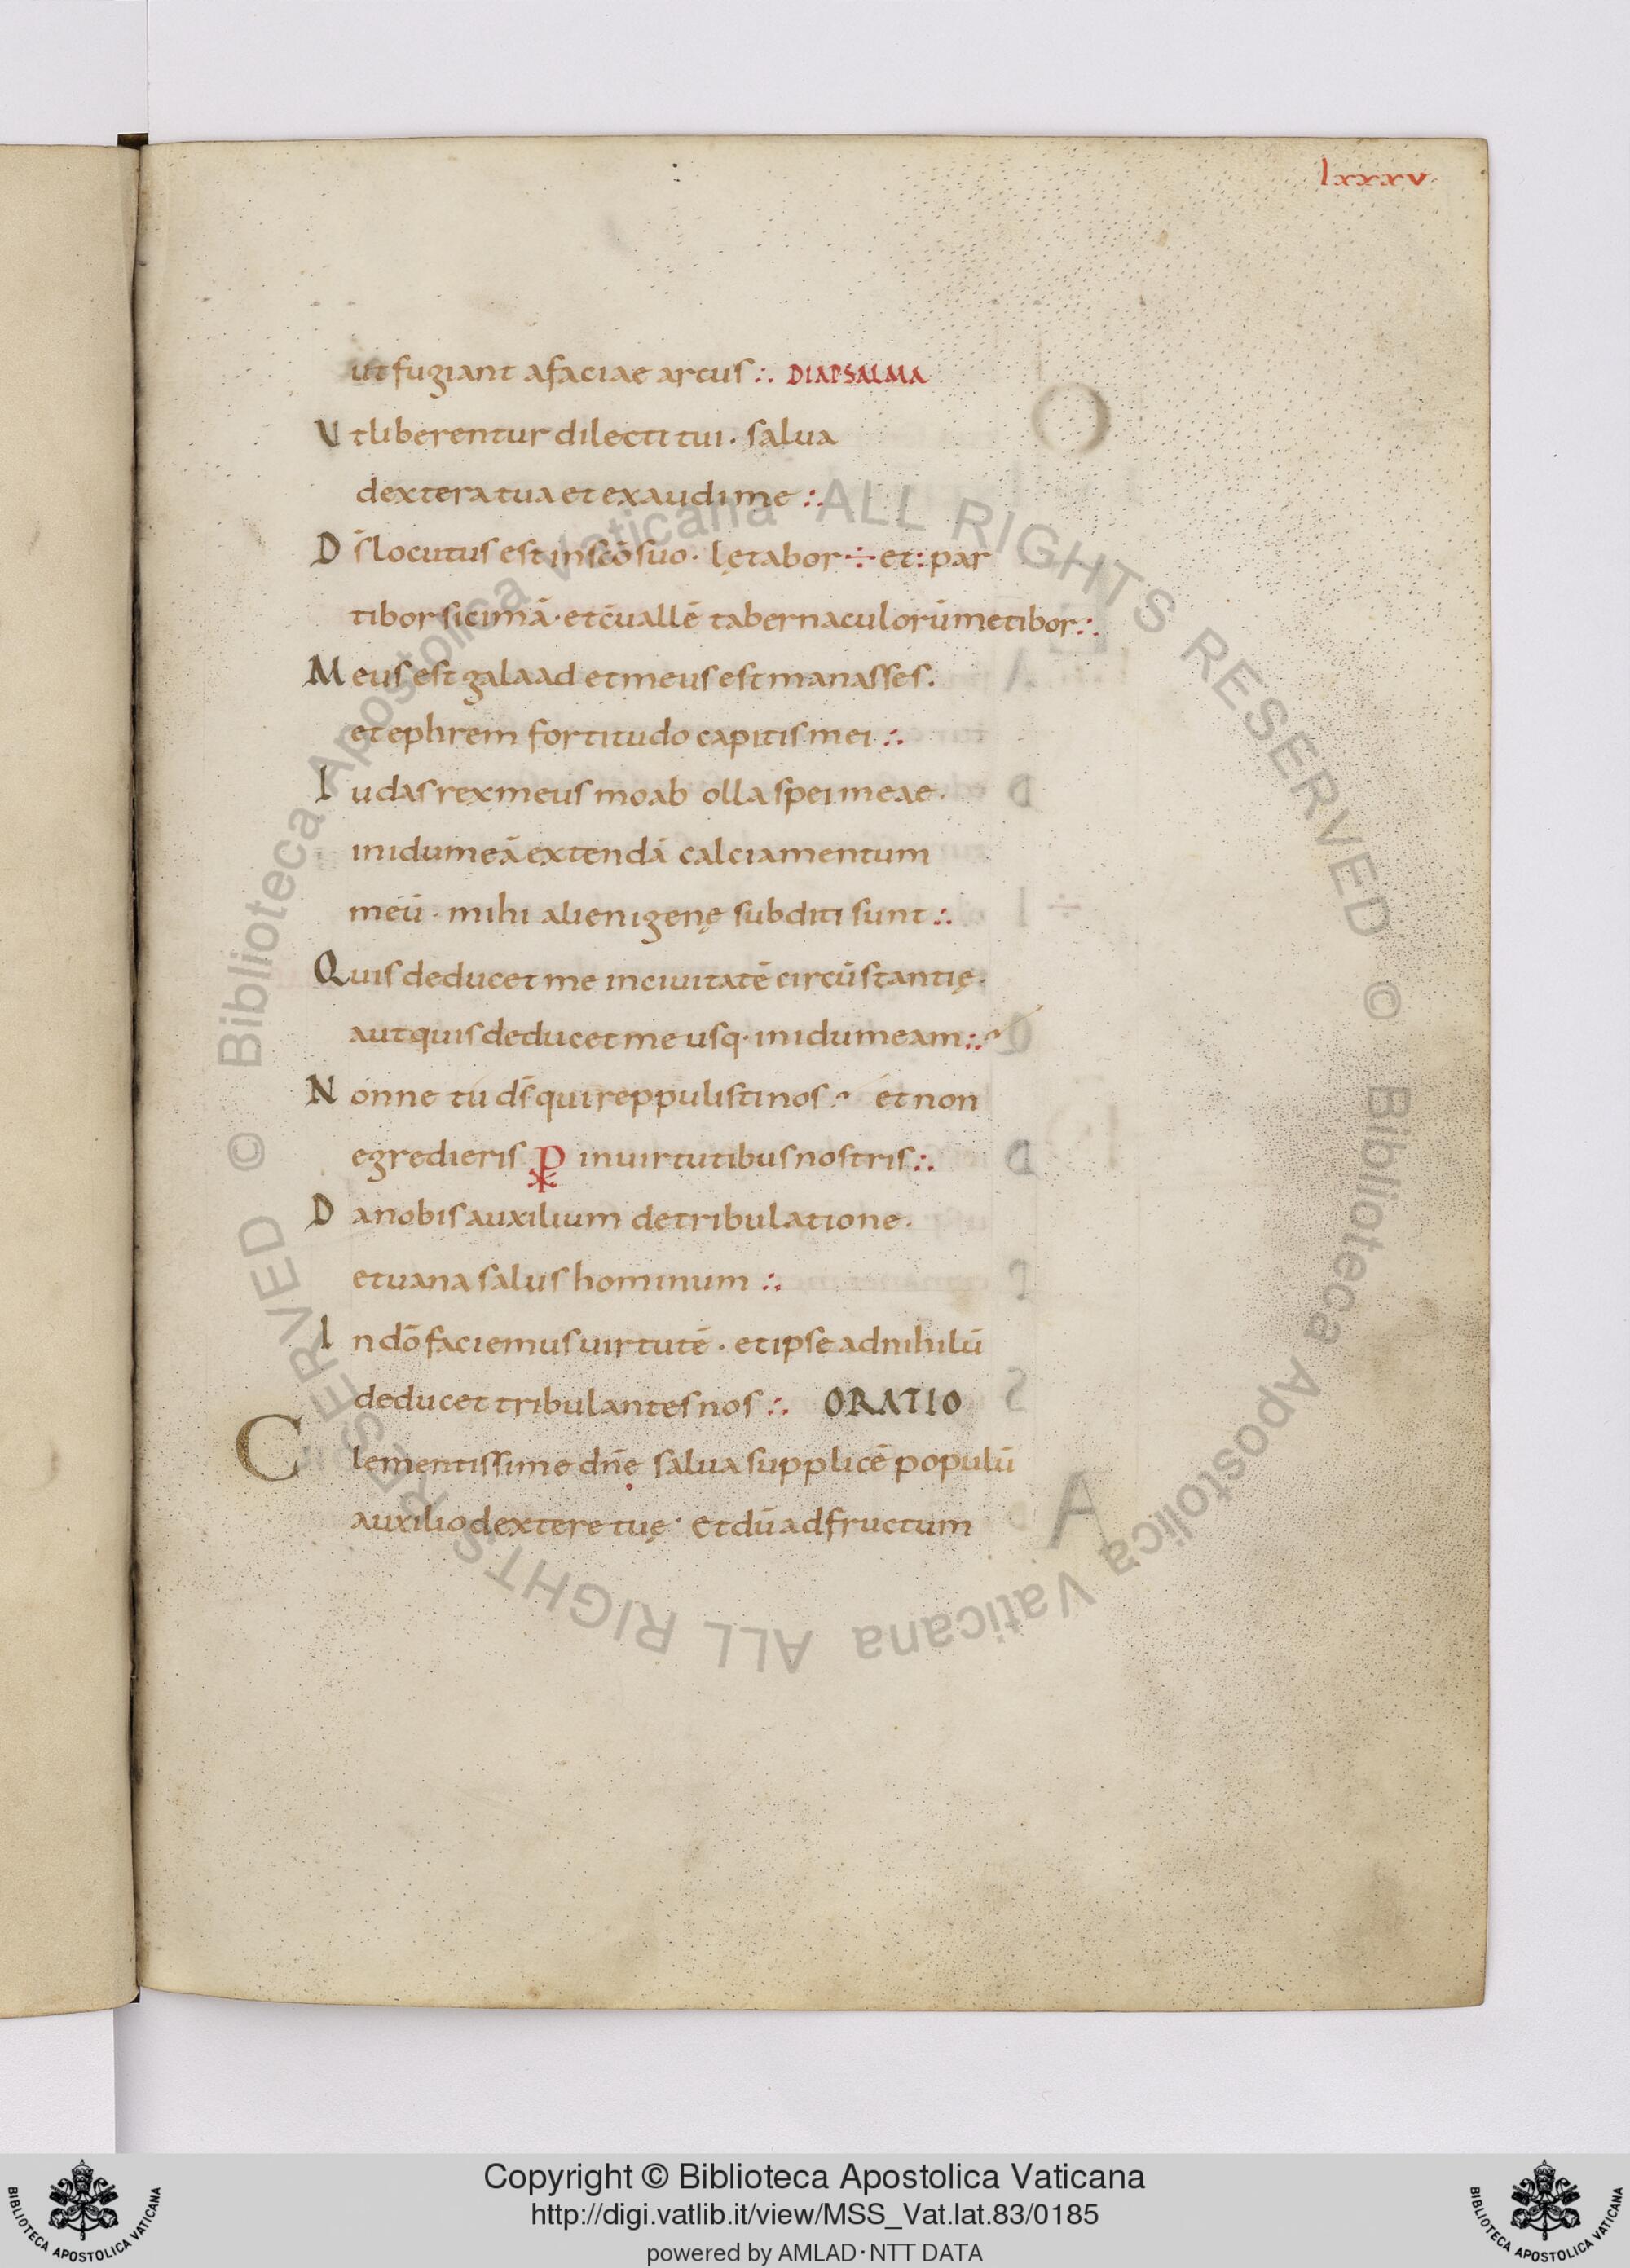 lxxxv
ut fugiant afaciae arcus :. DIAPSALMA
V tliberentur dilecti tui · salua
dextera tua et exaudi me :.
D s̄ locutus est in sc̄o suo · lętabor ÷ et : par
tibor sicimā · et c̄uallē tabernaculorūmetibor :.
M eus est galaad et meus est manasses .
et ephrem fortitudo capitis mei :.
I udas rex meus moab olla spei meae .
in idumeā extendā calciamentum
meū · mihi alienigenę subditi sunt :.
Q uis deducet me in ciuitatē circūstantię .
aut quis deducet me usq· in idumeam :.
N onne tu ds̄ qui reppulisti nos et non
egredieris ⳩ in uirtutibus nostris :.
D a nobis auxilium de tribulatione .
et uana salus hominum :.
I n dō faciemus uirtutē · et ipse ad nihilū
deducet tribulantes nos :. ORATIO
C lementissime dn̄e salua supplicē populū
auxilio dextere tuę · et dū ad fructum
© Biblioteca Apostolica Vaticana ALL RIGHTS RESERVED © Biblioteca Apostolica Vaticana ALL RIGHTS RESERVED
Copyright © Biblioteca Apostolica Vaticana
http://digi.vatlib.it/view/MSS_Vat.lat.83/0185
powered by AMLAD·NTT DATA
BIBLIOTECA APOSTOLICA VATICANA
BIBLIOTECA APOSTOLICA VATICANA